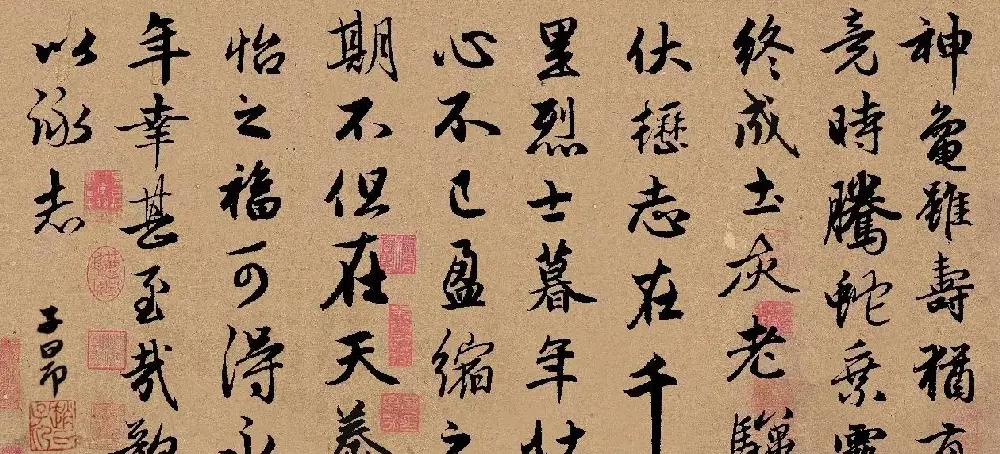 神龜雖壽猶有
竟時騰蛇乗霧
終成土灰老驥
伏櫪志在千
里烈士暮年壯
心不已盈縮之
期不但在天養
怡之福可得永
年幸甚至哉歌
以詠志
子昂